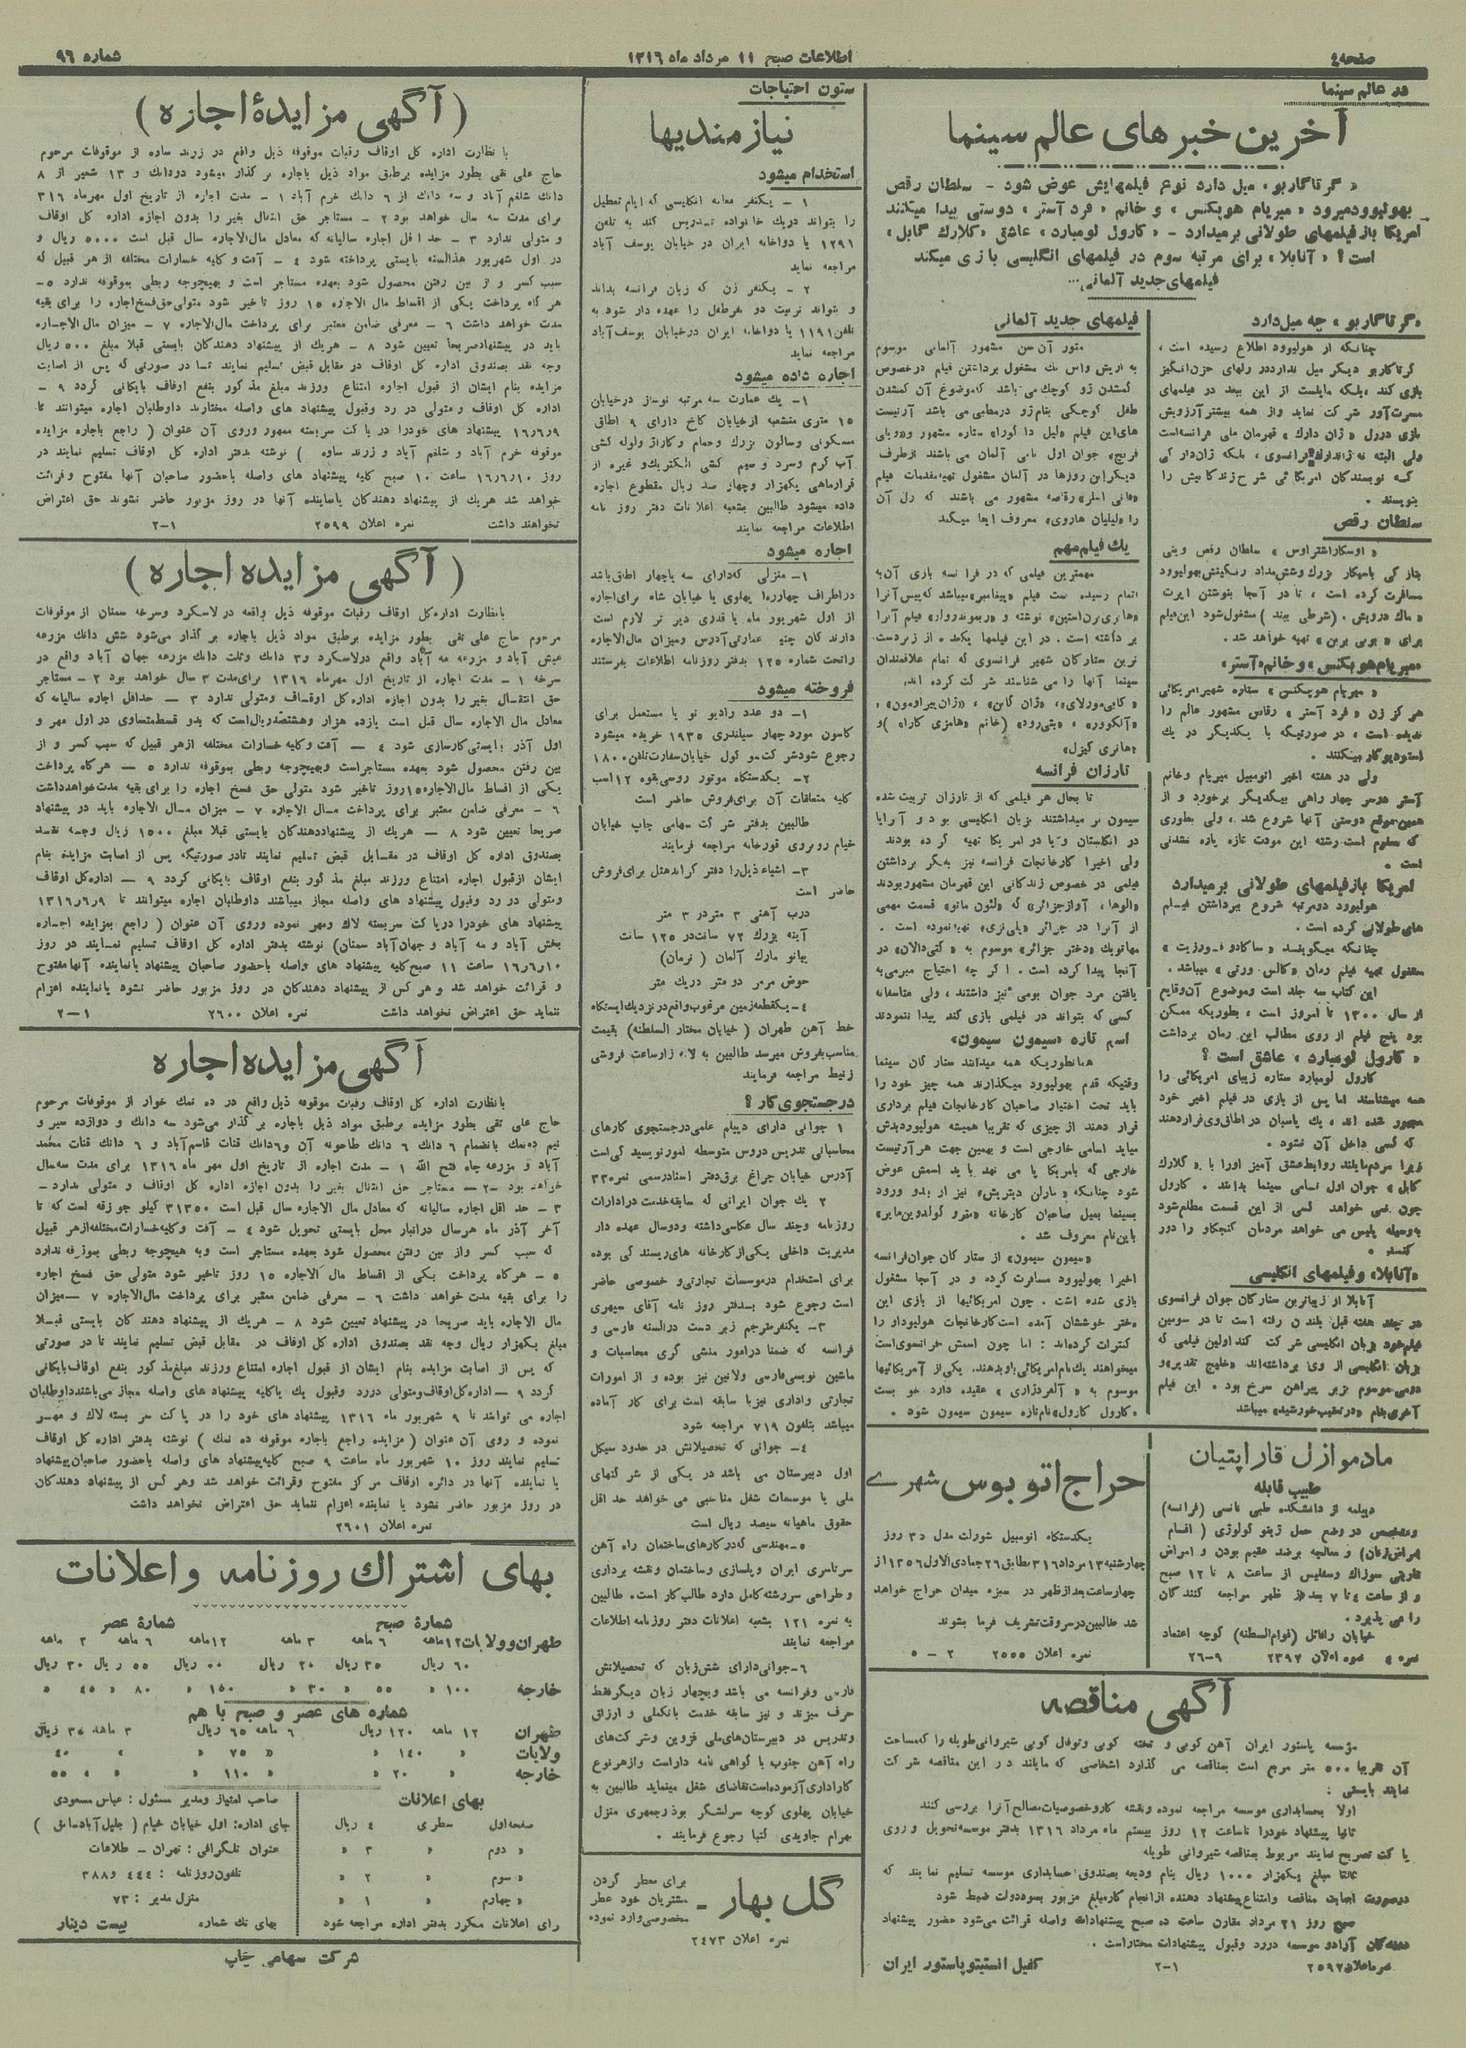 صفحه٤
اطلاعات صبح ١١ مرداد ماه ١٣١٦
شماره ٩٦
در عالم سینما
آخرین خبرهای عالم سینما
« گرتاگاربو » میل دارد نوع فیلمهایش عوض شود - سلطان رقص
بهولیوود میرود « میریام هوپکنس » و خانم « فرد آستر » دوستی پیدا میکنند
امریکا باز فیلمهای طولانی برمیدارد - « کارول لومبارد » عاشق « کلارک گابل »
است ؟ « آنابلا » برای مرتبه سوم در فیلمهای انگلیسی بازی میکند
فیلمهای جدید آلمانی...
«گرتاگاربو» چه میل دارد
چنانکه از هولیوود اطلاع رسیده است ،
گرتاکاربو دیگر میل ندارد رلهای حزن‌انگیز
بازی کند ، بلکه مایلست از این ببعد در فیلمهای
مسرت‌آور شرکت نماید و از همه بیشتر آرزویش
بازی در رل « ژان دارك » قهرمان ملی فرانسه است
که نویسندگان امریکائی شرح زندگانیش را
بنویسند .
سلطان رقص
« اوسکار اشتراوس » سلطان رقص وینی
مسافرت کرده است ، تا در آنجا بنوشتن اپرت
برای « بوبی برین » تهیه خواهد شد .
«میریام هوپکنس» و خانم «آستر»
« میریام هوپکنس » ستاره شهیر امریکائی
هرگز زن « فرد آستر » رقاص مشهور عالم را
ندیده است ، در صورتیکه با یکدیگر در یك
استودیو کار میکنند .
ولی در هفته اخیر اتومبیل میریام و خانم
آستر در سر چهار راهی بیکدیگر برخورد و از
همین موقع دوستی آنها شروع شد ، ولی بطوری
که معلوم است رشته این مودت تازه پاره نشدنی
است .
امریکا باز فیلمهای طولانی برمیدارد
هولیوود دومرتبه شروع ببرداشتن فیلم
های طولانی کرده است .
این کتاب سه جلد است و موضوع آن وقایع
از سال ١٣٠٠ تا امروز است ، بطوریکه ممکن
بود پنج فیلم از روی مطالب این رمان برداشت
« کارول لومبارد » عاشق است ؟
کارول لومبارد ستاره زیبای امریکائی را
همه میشناسند اما پس از بازی در فیلم اخیر خود
مجبور شده اند ، یك پاسبان در اطاق وی قرار دهند
که کسی داخل آن نشود .
زیرا مردم مایلند روابط عشق آمیز او را با « کلارك
گابل » جوان اول نامی سینما بدانند . کارول
چون نمی خواهد کسی از این قسمت مطلع شود
بوسیله پلیس می خواهد مردمان کنجکاو را دور
کند .
«آنابلا» و فیلمهای انگلیسی
آنابلا از زیباترین ستارگان جوان فرانسوی
در چند هفته قبل بلندن رفته است تا در سومین
فیلم خود بزبان انگلیسی شرکت کند اولین فیلمی که
بزبان انگلیسی از وی برداشته‌اند «خلیج تقدیر» و
دومی موسوم بزیر پیراهن سرخ بود . این فیلم
آخری بنام «در تعقیب خورشید» میباشد
فیلمهای جدید آلمانی
گمشدن ژو کوچك می باشد که موضوع آن گمشدن
یك فیلم مهم
مهمترین فیلمی که در فرانسه بازی آن به
برداشته است . در این فیلمها یکعده از زبردست
ترین ستارگان شهیر فرانسوی که تمام علاقمندان
سینما آنها را می شناسند شرکت کرده اند:
«هانری گیزل»
تارزان فرانسه
تا بحال هر فیلمی که از تارزان تربیت شده
سیمون بر میداشتند بزبان انگلیسی بود و آنرا یا
در انگلستان و یا در امریکا تهیه کرده بودند
ولی اخیرا کارخانجات فرانسه نیز بفکر برداشتن
فیلمی در خصوص زندگانی این قهرمان مشهور بودند
آنجا پیدا کرده است . اگر چه احتیاج مبرمی به
یافتن مرد جوان بومی نیز داشتند ، ولی متاسفانه
کسی که بتواند در فیلمی بازی کند پیدا ننمودند
اسم تازه «سیمون سیمون»
همانطوریکه همه میدانند ستارگان سینما
وقتیکه قدم بهولیوود میگذارند همه چیز خود را
باید تحت اختیار صاحبان کارخانجات فیلم برداری
قرار دهند از چیزی که تقریبا همیشه هولیوود پیش
میاید اسامی خارجی است و بهمین جهت هر آرتیست
خارجی که بامریکا پا می نهد باید اسمش عوض
شود چنانکه « مارلن دیتریش » نیز از بدو ورود
بسینما بمیل صاحبان کارخانه «مترو گولدوین مایر»
باین نام معروف شد .
«سیمون سیمون» از ستارگان جوان فرانسه
اخیرا بهولیوود مسافرت کرده و در آنجا مشغول
بازی شده است . چون امریکائیها از بازی این
دختر خوششان آمده است کارخانجات هولیوود را
کنترات کرده‌اند : اما چون اسمش فرانسوی است
میخواهند یك نام امریکائی باو بدهند . یکی از آمریکائیها
«کارول کارول» نام تازه سیمون سیمون شود .
مادموازل قاراپتیان
طبیب قابله
دیپلمه از دانشکده طبی نانسی (فرانسه)
ومتخصص در وضع حمل ژینو کولوژی ( اقسام
امراض زنان) و معالجه برضد عقیم بودن و امراض
مقاربتی سوزاك و سفلیس از ساعت ٨ تا ١٢ صبح
و از ساعت ٤ تا ٧ بعد از ظهر مراجعه کنندگان
را می پذیرد .
خیابان رفائل (قوام السلطنه) کوچه اعتماد
نمره ٤ نمره اعلان ٢٣٩٧ ٩-٢٦
حراج اتوبوس شهری
یکدستگاه اتومبیل شورلت مدل ٣٥ روز
چهارشنبه ١٣ مرداد ٣١٦ مطابق ٢٦ جمادی الاول ١٣٥٦ از
چهارساعت بعد از ظهر در سبزه میدان حراج خواهد
شد طالبین در سر وقت تشریف فرما بشوند
نمره اعلان ٢٥٥٥ ٢-٥
آگهی مناقصه
مؤسسه پاستور ایران آهن کوبی و تخته کوبی و توفال کوبی شیروانی طویله را که مساحت
آن تقریبا ٥٠٠ متر مربع است بمناقصه می گذارد اشخاصی که مایلند در این مناقصه شرکت
نمایند بایستی :
اولا بحسابداری موسسه مراجعه نموده و نقشه کار و خصوصیات مصالح آنرا بررسی کنند
ثانیا پیشنهاد خود را تا ساعت ١٢ روز بیستم ماه مرداد ١٣١٦ بدفتر موسسه تحویل و روی
پاکت تصریح نمایند مربوط بمناقصه شیروانی طویله
ثالثا مبلغ یکهزار ١٠٠٠ ریال بنام ودیعه بصندوق حسابداری موسسه تسلیم نمایند که
درصورت اجابت مناقصه و امتناع پیشنهاد دهنده از انجام کار مبلغ مزبور بسود دولت ضبط شود
صبح روز ٢١ مرداد مقارن ساعت ده صبح پیشنهادات واصله قرائت می‌شود حضور پیشنهاد
دهندگان آزاد و موسسه در رد و قبول پیشنهادات مختار است .
نمره اعلان ٢٥٩٢ ١-٢ کفیل انستیتو پاستور ایران
ستون احتیاجات
نیازمندیها
استخدام میشود
١ - یکنفر معلمه انگلیسی که ایام تعطیل
را بتواند در یك خانواده تدریس کند به تلفن
١٢٩١ یا دواخانه ایران در خیابان یوسف آباد
مراجعه نماید
٢ - یکنفر زن که زبان فرانسه بداند
و بتواند تربیت دو نفر طفل را عهده دار شود به
تلفن ١١٩١ یا دواخانه ایران در خیابان یوسف آباد
مراجعه نماید
اجاره داده میشود
١- یك عمارت سه مرتبه نوساز در خیابان
١٥ متری منشعبه از خیابان کاخ دارای ٩ اطاق
مسکونی و سالون بزرك و حمام و گاراژ و لوله کشی
آب گرم و سرد و سیم کشی الکتریك و غیره از
قرار ماهی یکهزار و چهار صد ریال مقطوع اجاره
داده میشود طالبین بشعبه اعلانات دفتر روز نامه
اطلاعات مراجعه نمایند
اجاره میشود
١- منزلی که دارای سه یا چهار اطاق باشد
در اطراف چهارراه پهلوی یا خیابان شاه برای اجاره
از اول شهریور ماه یا قدری دیر تر لازم است
دارندگان چنین عمارتی آدرس و میزان مال الاجاره
را تحت شماره ١٢٥ بدفتر روزنامه اطلاعات بفرستند
فروخته میشود
١- دو عدد رادیو نو یا مستعمل برای
کامیون فورد چهار سیلندری ١٩٣٥ خریده میشود
رجوع شود شرکت مو کول خیابان سفارت تلفن ١٨٠٠
٢- یکدستگاه موتور روسی بقوه ١٢ اسب
کلیه متعلقات آن برای فروش حاضر است
طالبین بدفتر شرکت سهامی چاپ خیابان
خیام روبروی قورخانه مراجعه فرمایند
٣- اشیاء ذیل را دفتر گراند هتل برای فروش
حاضر است
درب آهنی ٣ متر در ٣ متر
آینه بزرك ٧٢ سانت در ١٢٥ سانت
پیانو مارك آلمان ( نرمان)
حوض مرمر دو متر در یك متر
٤- یکقطعه زمین مرغوب واقع در نزدیك ایستگاه
خط آهن طهران ( خیابان مختار السلطنه) بقیمت
مناسب بفروش میرسد طالبین به لاله زار ساعت فروشی
زنیط مراجعه فرمایند
در جستجوی کار ؟
١ جوانی دارای دیپلم علمی در جستجوی کارهای
محاسباتی تدریس دروس متوسطه امور نویسندگی است
آدرس خیابان چراغ برق دفتر اسناد رسمی نمره ٣٣
٢ یك جوان ایرانی که سابقه خدمت در ادارات
روزنامه و چند سال عکاسی داشته و دو سال عهده دار
مدیریت داخلی یکی از کارخانه های ریسندگی بوده
برای استخدام در موسسات تجارتی و خصوصی حاضر
است رجوع شود بدفتر روز نامه آقای سپهری
٣- یکنفر مترجم زبر دست در السنه فارسی و
فرانسه که ضمنا در امور منشی گری محاسبات و
ماشین نویسی فارسی و لاتین نیز بوده و از امورات
تجارتی و اداری نیز با سابقه است برای کار آماده
میباشد بتلفون ٧١٩ مراجعه شود
٤- جوانی که تحصیلاتش در حدود سیکل
اول دبیرستان می باشد در یکی از شرکتهای
ملی یا موسسات شغل مناسبی می خواهد حد اقل
حقوق ماهیانه سیصد ریال است
٥- مهندسی که در کارهای ساختمان راه آهن
سرتاسری ایران و پلسازی و ساختمان و نقشه برداری
و طراحی سررشته کامل دارد طالب کار است . طالبین
به نمره ١٢١ بشعبه اعلانات دفتر روزنامه اطلاعات
مراجعه نمایند
٦- جوانی دارای شش زبان که تحصیلاتش
فارسی و فرانسه می باشد و بچهار زبان دیگر فقط
حرف میزند و نیز سابقه خدمت بانك ملی و ارزاق
و تدریس در دبیرستان‌های ملی قزوین و شرکت‌های
راه آهن جنوب با گواهی نامه داراست و از هر نوع
کار اداری آزموده است تقاضای شغل مینماید طالبین به
خیابان پهلوی کوچه سرلشگر بوذرجمهری منزل
بهرام جاویدی کتبا رجوع فرمایند .
گل بهار -
برای معطر کردن
مشتریان خود عطر
مخصوصی وارد نموده
نمره اعلان ٢٤٧٣
( آگهی مزایدهٔ اجازه )
با نظارت اداره کل اوقاف رقبات موقوفه ذیل واقع در زرند ساوه از موقوفات مرحوم
حاج علی نقی بطور مزایده برطبق مواد ذیل باجاره برگذار میشود دودانك و ١٣ شعیر از ٨
دانك شلفم آباد و سه دانك از ٦ دانك خرم آباد ١ - مدت اجاره از تاریخ اول مهرماه ٣١٦
برای مدت سه سال خواهد بود ٢ - مستاجر حق انتقال بغیر را بدون اجازه اداره کل اوقاف
و متولی ندارد ٣ - حد اقل اجاره سالیانه که معادل مال‌الاجاره سال قبل است ٥٠٠٠ ریال و
در اول شهریور هذالسنه بایستی پرداخته شود ٤ - آفت و کلیه خسارات مختلفه از هر قبیل که
سبب کسر و از بین رفتن محصول شود بعهده مستاجر است و بهیچوجه ربطی بموقوفه ندارد ٥-
هرگاه پرداخت یکی از اقساط مال الاجاره ١٥ روز تاخیر شود متولی حق فسخ اجاره را برای بقیه
مدت خواهد داشت ٦ - معرفی ضامن معتبر برای پرداخت مال‌الاجاره ٧ - میزان مال الاجاره
باید در پیشنهاد صریحا تعیین شود ٨ - هریك از پیشنهاد دهندگان بایستی قبلا مبلغ ٥٠٠ ریال
وجه نقد بصندوق اداره کل اوقاف در مقابل قبض تسلیم نمایند تا در صورتی که پس از اصابت
مزایده بنام ایشان از قبول اجاره امتناع ورزند مبلغ مذکور بنفع اوقاف بایگانی گردد ٩ -
اداره کل اوقاف و متولی در رد و قبول پیشنهاد های واصله مختارند داوطلبان اجاره میتوانند تا
١٦ر٦ر٩ پیشنهاد های خود را در پاکت سربسته ممهور و روی آن عنوان ( راجع باجاره مزایده
موقوفه خرم آباد و شلفم آباد و زرند ساوه ) نوشته بدفتر اداره کل اوقاف تسلیم نمایند در
روز ١٦ر٦ر١٠ ساعت ١٠ صبح کلیه پیشنهاد های واصله باحضور صاحبان آنها مفتوح و قرائت
خواهد شد هریك از پیشنهاد دهندگان یا نماینده آنها در روز مزبور حاضر نشوند حق اعتراض
نخواهند داشت نمره اعلان ٢٥٩٩ ١-٢
( آگهی مزایده اجاره )
بانظارت اداره کل اوقاف رقبات موقوفه ذیل واقعه در لاسکرد و سرخه سمنان از موقوفات
مرحوم حاج علی نقی بطور مزایده برطبق مواد ذیل باجاره برگذار می‌شود شش دانك مزرعه
عیش آباد و مزرعه مه آباد واقع در لاسکرد و ٣ دانك و ثلث دانك مزرعه جهان آباد واقع در
سرخه ١ - مدت اجاره از تاریخ اول مهرماه ١٣١٦ برای مدت ٣ سال خواهد بود ٢ - مستاجر
حق انتقال بغیر را بدون اجازه اداره کل اوقاف و متولی ندارد ٣ - حداقل اجاره سالیانه که
معادل مال الاجاره سال قبل است یازده هزار و هشتصد ریال است که بدو قسط متساوی در اول مهر و
اول آذر بایستی کارسازی شود ٤ - آفت و کلیه خسارات مختلفه از هر قبیل که سبب کسر و از
بین رفتن محصول شود بعهده مستاجر است و بهیچوجه ربطی بموقوفه ندارد ٥ - هرگاه پرداخت
یکی از اقساط مال‌الاجاره ١٥ روز تاخیر شود متولی حق فسخ اجاره را برای بقیه مدت خواهد داشت
٦ - معرفی ضامن معتبر برای پرداخت مال الاجاره ٧ - میزان مال الاجاره باید در پیشنهاد
صریحا تعیین شود ٨ - هریك از پیشنهاد دهندگان بایستی قبلا مبلغ ١٥٠٠ ریال وجه نقد
بصندوق اداره کل اوقاف در مقابل قبض تسلیم نمایند تا در صورتیکه پس از اصابت مزایده بنام
ایشان از قبول اجاره امتناع ورزند مبلغ مذکور بنفع اوقاف بایگانی گردد ٩ - اداره کل اوقاف
و متولی در رد و قبول پیشنهاد های واصله مجاز میباشند داوطلبان اجاره میتوانند تا ١٣١٦ر٦ر٩
پیشنهاد های خود را در پاکت سربسته لاك و مهر نموده و روی آن عنوان ( راجع بمزایده اجاره
بخش آباد و مه آباد و جهان آباد سمنان) نوشته بدفتر اداره کل اوقاف تسلیم نمایند در روز
١٦ر٦ر١٠ ساعت ١١ صبح کلیه پیشنهاد های واصله باحضور صاحبان پیشنهاد یا نماینده آنها مفتوح
و قرائت خواهد شد و هرکس از پیشنهاد دهندگان در روز مزبور حاضر نشود یا نماینده اعزام
ننماید حق اعتراض نخواهد داشت نمره اعلان ٢٦٠٠ ١-٢
آگهی مزایده اجاره
بانظارت اداره کل اوقاف رقبات موقوفه ذیل واقع در ده نمك خوار از موقوفات مرحوم
حاج علی نقی بطور مزایده برطبق مواد ذیل باجاره برگذار می‌شود سه دانك و دوازده سیر و
نیم ده‌نمك بانضمام ٦ دانك ٦ دانك طاحونه آن و ٦ دانك قنات قاسم‌آباد و ٦ دانك قنات محمد
آباد و مزرعه چاه فتح الله ١ - مدت اجاره از تاریخ اول مهر ماه ١٣١٦ برای مدت سه سال
خواهد بود ٢ - مستاجر حق انتقال بغیر را بدون اجازه اداره کل اوقاف و متولی ندارد -
٣ - حد اقل اجاره سالیانه که معادل مال الاجاره سال قبل است ٣١٣٥٠ کیلو جو زقه است که تا
آخر آذر ماه هر سال در انبار محل بایستی تحویل شود ٤ - آفت و کلیه خسارات مختلفه از هر قبیل
که سبب کسر و از بین رفتن محصول شود بعهده مستاجر است و به هیچوجه ربطی بموقوفه ندارد
٥ - هرگاه پرداخت یکی از اقساط مال الاجاره ١٥ روز تاخیر شود متولی حق فسخ اجاره
را برای بقیه مدت خواهد داشت ٦ - معرفی ضامن معتبر برای پرداخت مال‌الاجاره ٧ - میزان
مال الاجاره باید صریحا در پیشنهاد تعیین شود ٨ - هریك از پیشنهاد دهندگان بایستی قبلا
مبلغ یکهزار ریال وجه نقد بصندوق اداره کل اوقاف در مقابل قبض تسلیم نمایند تا در صورتی
که پس از اصابت مزایده بنام ایشان از قبول اجاره امتناع ورزند مبلغ مذکور بنفع اوقاف بایگانی
گردد ٩ - اداره کل اوقاف و متولی در رد و قبول یك یا کلیه پیشنهاد های واصله مجاز می‌باشند داوطلبان
اجاره می توانند تا ٩ شهریور ماه ١٣١٦ پیشنهاد های خود را در پاکت سر بسته لاك و مهر
نموده و روی آن عنوان ( مزایده راجع باجاره موقوفه ده نمك ) نوشته بدفتر اداره کل اوقاف
تسلیم نمایند روز ١٠ شهریور ماه ساعت ٩ صبح کلیه پیشنهاد های واصله باحضور صاحبان پیشنهاد
یا نماینده آنها در دائره اوقاف مرکز مفتوح و قرائت خواهد شد و هر کس از پیشنهاد دهندگان
در روز مزبور حاضر نشود یا نماینده اعزام ننماید حق اعتراض نخواهد داشت
نمره اعلان ٢٦٠١
بهای اشتراك روزنامه و اعلانات
شمارهٔ صبح شمارهٔ عصر
طهران وولایات ١٢ماهه ٦ ماهه ٣ ماهه ١٢ماهه ٦ ماهه ٣ ماهه
٦٠ ریال ٣٥ ریال ٢٠ ریال ١٠٠ ریال ٥٥ ریال ٣٠ ریال
خارجه ١٠٠ » ٥٥ » ٣٠ » ١٥٠ » ٨٠ » ٤٥ »
شماره های عصر و صبح با هم
طهران ١٢ ماهه ١٢٠ ریال ٦ ماهه ٦٥ ریال ٣ ماهه ٣٥ ریال
ولایات » ١٤٠ » » ٧٥ » » ٤٠
خارجه » » » ١١٠ » » ٥٥ »
بهای اعلانات
صفحه اول سطری ٤ ریال
» دوم » ٣ »
» سوم » ٢ »
» چهارم » ١ »
رای اعلانات مکرر بدفتر اداره مراجعه شود
صاحب امتیاز ومدیر مسئول : عباس مسعودی
جای اداره: اول خیابان خیام ( جلیل آباد سابق )
عنوان تلگرافی : تهران - اطلاعات
تلفون روزنامه : ٤٤٤ و ٣٨٨
منزل مدیر : ٧٣
بهای تك شماره بیست دینار
شرکت سهامی چاپ